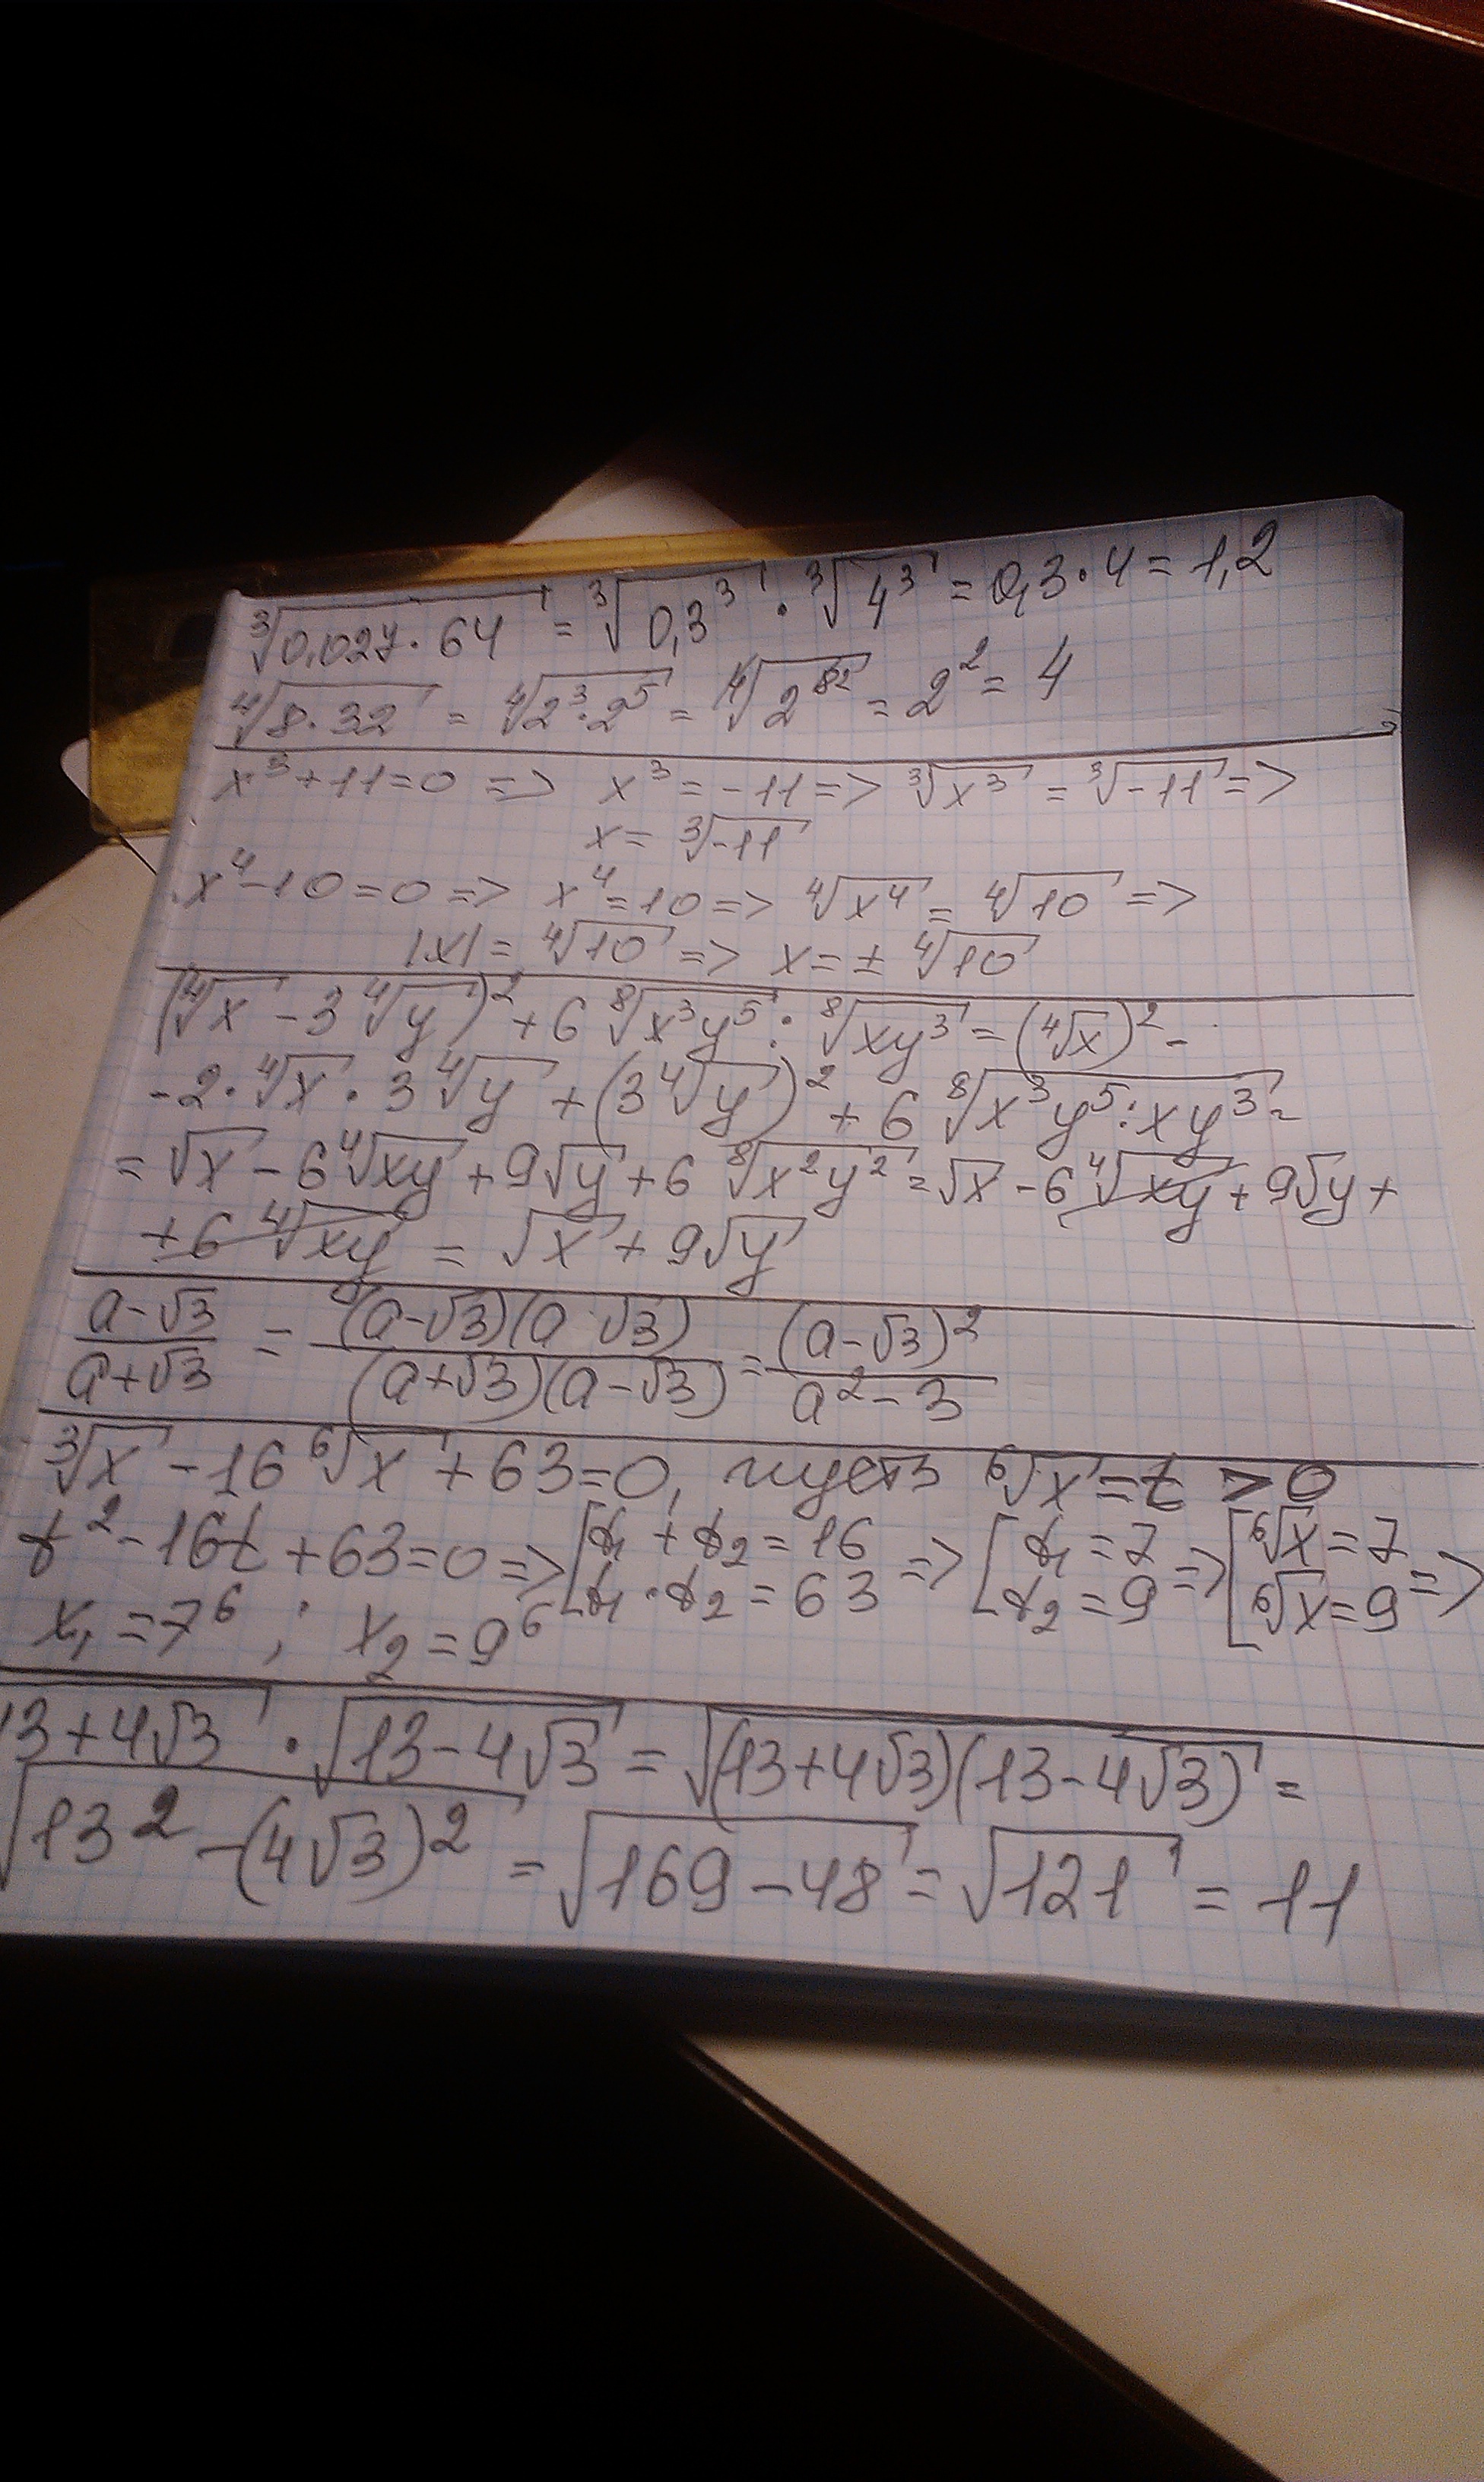 ∛(0,027·64) = ∛(0,3³) · ∛(4³) = 0,3·4 = 1,2
∜(8·32) = ∜(2³·2⁵) = ∜(2⁸) = 2² = 4
x³+11=0 => x³=-11 => ∛(x³) = ∛(-11) =>
x = ∛(-11)
x⁴-10=0 => x⁴=10 => ∜(x⁴) = ∜10 =>
|x| = ∜10 => x=± ∜10
(∜x - 3∜y)² + 6 ⁸√(x³y⁵) : ⁸√(xy³) = (∜x)² -
-2·∜x · 3∜y + (3∜y)² + 6 ⁸√(x³y⁵:xy³) =
= √x - 6∜(xy) + 9√y + 6 ⁸√(x²y²) = √x - 6∜(xy) + 9√y +
+6 ∜(xy) = √x + 9√y
(a-√3)/(a+√3) = ((a-√3)(a √3))/((a+√3)(a-√3)) = (a-√3)²/(a²-3)
∛x - 16 ⁶√x + 63=0, пусть ⁶√x = t > 0
t²-16t+63=0 => [t₁+t₂=16 t₁·t₂=63 => [t₁=7 t₂=9 => [⁶√x=7 ⁶√x=9 =>
x₁=7⁶ ; x₂=9⁶
13+4√3 · √(13-4√3) = √((13+4√3)(13-4√3)) =
√(13²-(4√3)²) = √(169-48) = √121 = 11